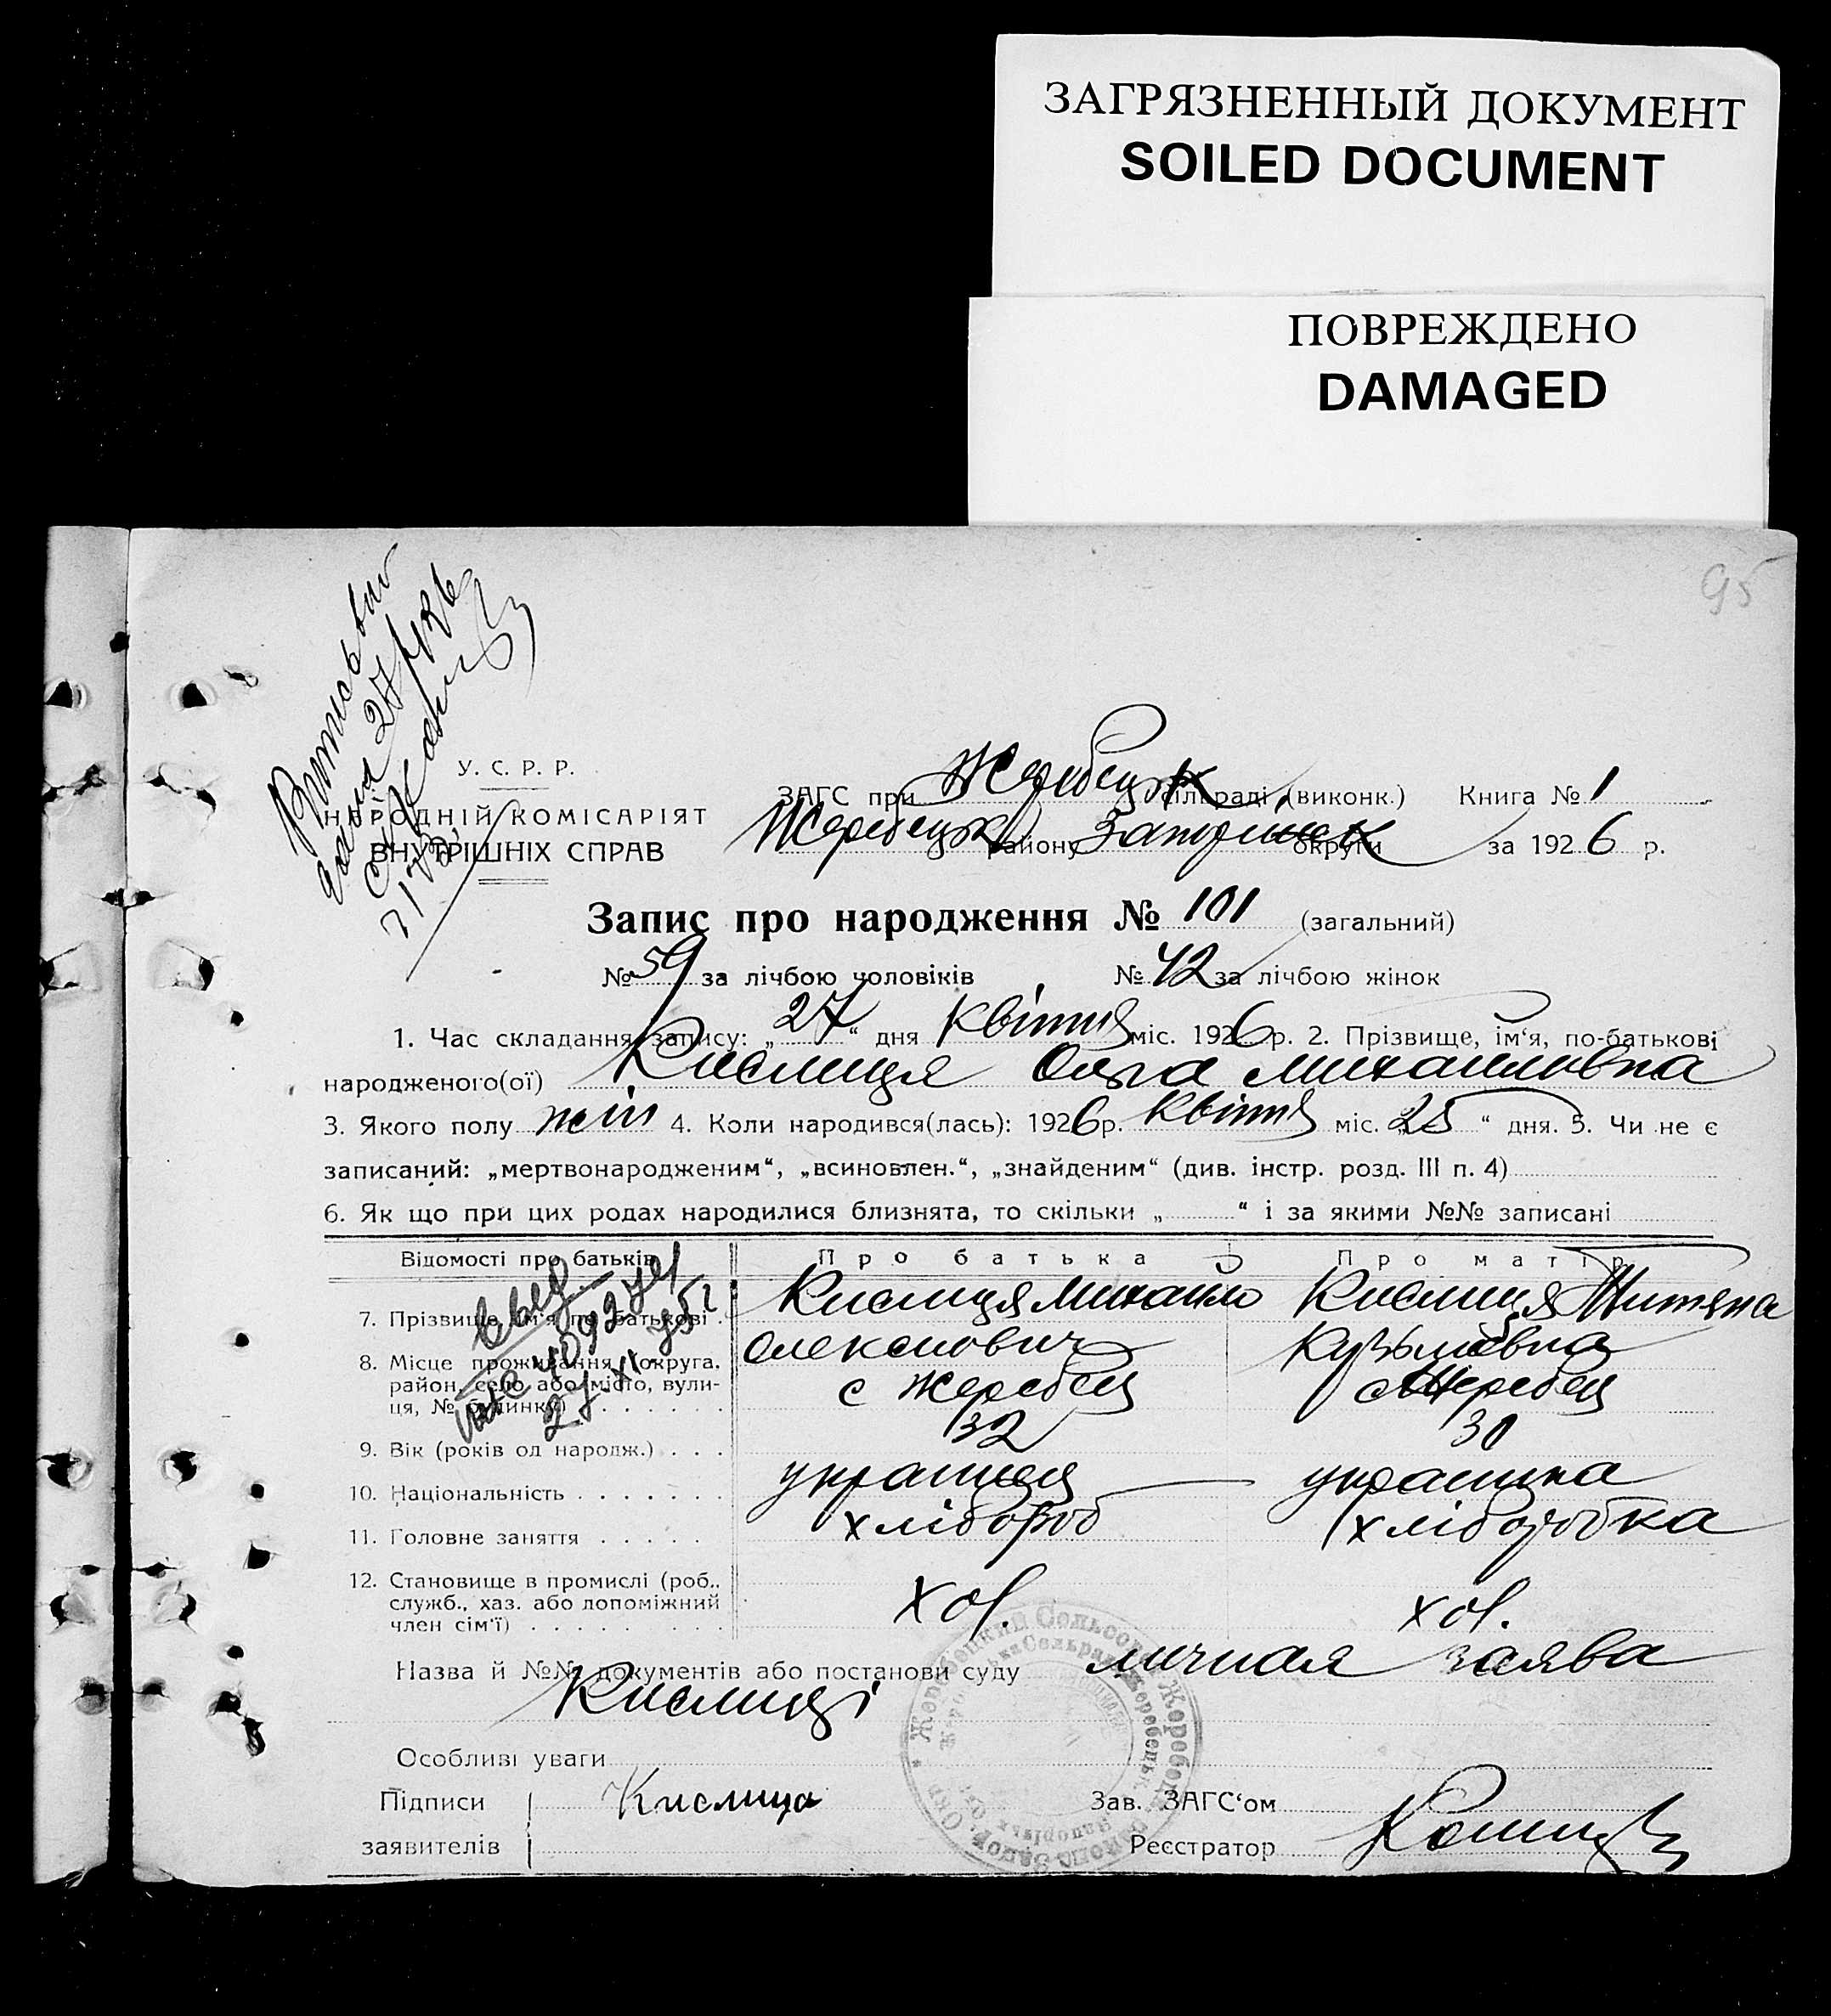 ЗАГРЯЗНЕННЫЙ ДОКУМЕНТ
SOILED DOCUMENT
ПОВРЕЖДЕНО
DAMAGED
95
У. С. Р. Р.
НАРОДНІЙ КОМІСАРІЯТ
ВНУТРІШНІХ СПРАВ
ЗАГС при Жеребецьк сільраді (виконк.) Книга № 1
Жеребецьк району Запоріжськ округи за 1926 р.
Запис про народження № 101 (загальний)
№ 59 за лічбою чоловіків № 42 за лічбою жінок
1. Час складання запису: „27“ дня Квітня міс. 1926 р. 2. Прізвище, ім‘я, по-батькові
народженого(ої) Кислиця Ольга Михаиловна
3. Якого полу жін 4. Коли народився(лась): 1926 р. Квітня міс. „25“ дня. 5. Чи не є
записаний: „мертвонародженим“, „всиновлен.“, „знайденим“ (див. інстр. розд. III п. 4)
6. Як що при цих родах народилися близнята, то скільки „ “ і за якими №№ записані
Відомості про батьків Про батька Про матір
7. Прізвище, ім‘я, по батькові . Кислиця Михайло Кислиця
Олексиович Кузьмовна
8. Місце проживання (округа,
район, село або місто, вули-
ця, № будинку) с Жеребец с Жеребец
9. Вік (років од народж.) 32 30
10. Національність украінец украинка
11. Головне заняття хлібороб хліборобка
12. Становище в промислі (роб.,
служб., хаз. або допоміжний
член сім‘ї) хоз. хоз.
Назва й №№ документів або постанови суду личная заява
Кислиці
Особливі уваги
Підписи Кислица Зав. ЗАГС‘ом
заявителів Реєстратор